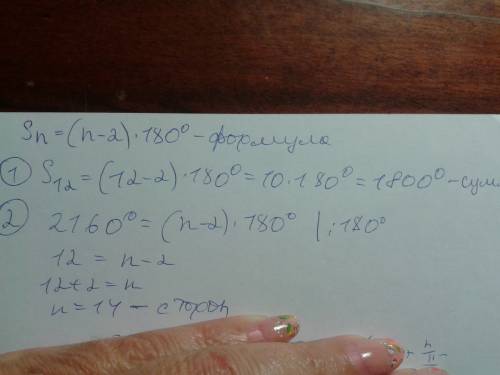 Sn=(n-2)·180° - формула
① S₁₂=(12-2)·180°=10·180°=1800° - сумм
② 2160°=(n-2)·180° |:180°
12 = n-2
12+2=n
n=14 - сторон